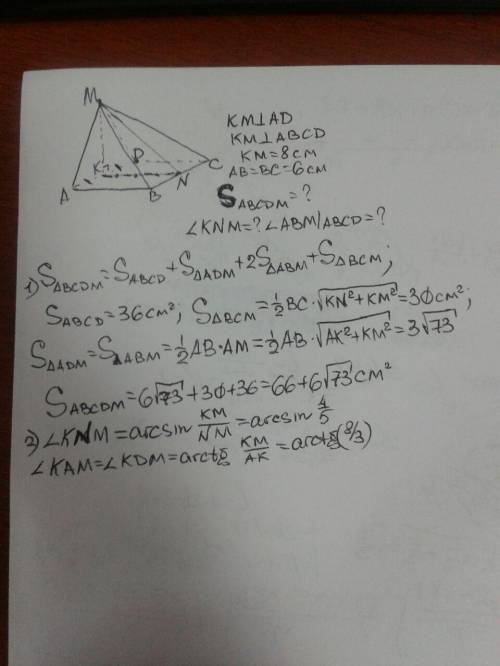 M
K
P
C
A
B
N
KM⊥AD
KM⊥ABCD
KM=8см
AB=BC=6см
S_ABCDM=?
∠KNM=? ∠ABM/ABCD=?
1) S_ABCDM=S_ABCD+S_ΔADM+2S_ΔABM+S_ΔBCM;
S_ABCD=36см²; S_ΔBCM=½BC·√KN²+KM²=30см²;
S_ΔADM=S_ΔABM=½AB·AM=½AB·√AK²+KM²=3√73
S_ABCDM=6√73+30+36=66+6√73см²
2) ∠KNM=arcsin KM/NM=arcsin 4/5
∠KAM=∠KDM=arctg KM/AK=arctg(8/3)